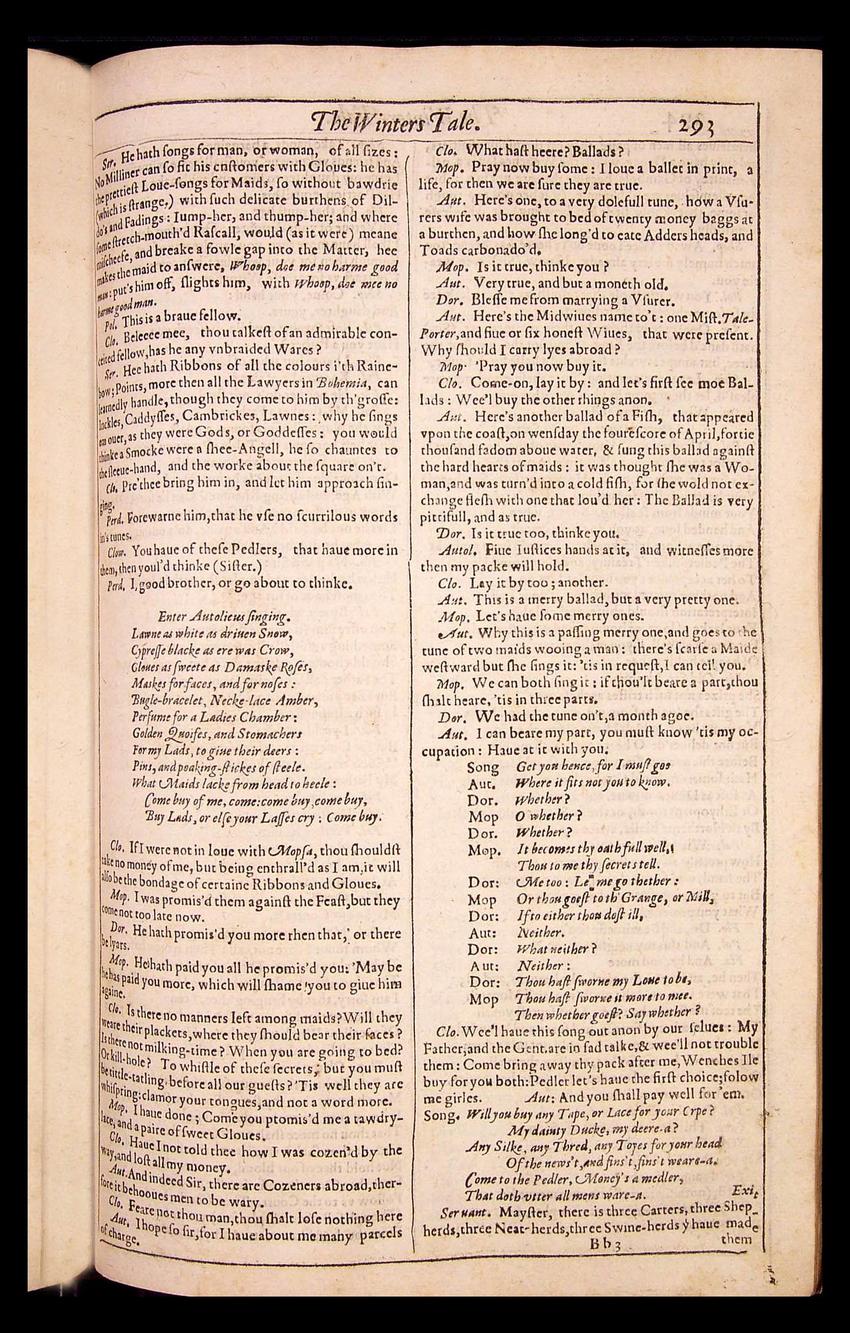 The Winters Tale. 293
Ser. He hath ſongs for man, or woman, of all ſizes:
No Milliner can ſo fit his cuſtomers with Gloues: he has
the prettieſt Loue-ſongs for Maids, ſo without bawdrie
(which is ſtrange,) with ſuch delicate burthens of Dil-
do's and Fadings: Iump-her, and thump-her; and where
ſome ſtretch-mouth'd Raſcall, would (as it were) meane
miſcheefe, and breake a fowle gap into the Matter, hee
makes the maid to anſwere, Whoop, doe me no harme good
man: put's him off, ſlights him, with Whoop, doe mee no
harme good man.
Pol. This is a braue fellow.
Clo. Beleeee mee, thou talkeſt of an admirable con-
ceited fellow, has he any vnbraided Wares?
Ser. Hee hath Ribbons of all the colours i'th Raine-
bow; Points, more then all the Lawyers in Bohemia, can
learnedly handle, though they come to him by th'groſſe:
Inckles, Caddyſſes, Cambrickes, Lawnes: why he ſings
em ouer, as they were Gods, or Goddeſſes: you would
thinke a Smocke were a ſhee-Angell, he ſo chauntes to
the ſleeue-hand, and the worke about the ſquare on't.
Clo. Pre'thee bring him in, and let him approach ſin-
ging.
Perd. Forewarne him, that he vſe no ſcurrilous words
in's tunes.
Clow. You haue of theſe Pedlers, that haue more in
them, then youl'd thinke (Siſter.)
Perd. I, good brother, or go about to thinke.
Enter Autolicus ſinging.
Lawne as white as driuen Snow,
Cypreſſe blacke as ere was Crow,
Gloues as ſweete as Damaske Roſes,
Maskes for faces, and for noſes:
Bugle-bracelet, Necke-lace Amber,
Perfume for a Ladies Chamber:
Golden Quoifes, and Stomachers
For my Lads, to giue their deers:
Pins, and poaking-ſtickes of ſteele.
What Maids lacke from head to heele:
Come buy of me, come: come buy, come buy,
Buy Lads, or elſe your Laſſes cry: Come buy.
Clo. If I were not in loue with Mopſa, thou ſhouldſt
take no money of me, but being enthrall'd as I am, it will
alſo be the bondage of certaine Ribbons and Gloues.
Mop. I was promis'd them againſt the Feaſt, but they
come not too late now.
Dor. He hath promis'd you more then that, or there
be lyars.
Mop. He hath paid you all he promis'd you: 'May be
he has paid you more, which will ſhame you to giue him
againe.
Clo. Is there no manners left among maids? Will they
weare their plackets, where they ſhould bear their faces?
Is there not milking-time? When you are going to bed?
Or kill-hole? To whiſtle of theſe ſecrets, but you muſt
be tittle-tatling before all our gueſts? 'Tis well they are
whiſpring: clamor your tongues, and not a word more.
Mop. I haue done; Come you promis'd me a tawdry-
lace, and a paire of ſweet Gloues.
Clo. Haue I not told thee how I was cozen'd by the
way, and loſt all my money.
Aut. And indeed Sir, there are Cozeners abroad, ther-
fore it behooues men to be wary.
Clo. Feare not thou man, thou ſhalt loſe nothing here
Aut. I hope ſo ſir, for I haue about me many parcels
of charge.
Clo. What haſt heere? Ballads?
Mop. Pray now buy ſome: I loue a ballet in print, a
life, for then we are ſure they are true.
Aut. Here's one, to a very dolefull tune, how a Vſu-
rers wife was brought to bed of twenty money baggs at
a burthen, and how ſhe long'd to eate Adders heads, and
Toads carbonado'd.
Mop. Is it true, thinke you?
Aut. Very true, and but a moneth old.
Dor. Bleſſe me from marrying a Vſurer.
Aut. Here's the Midwiues name to't: one Miſt. Tale-
Porter, and fiue or ſix honeſt Wiues, that were preſent.
Why ſhould I carry lyes abroad?
Mop. 'Pray you now buy it.
Clo. Come-on, lay it by: and let's firſt ſee moe Bal-
lads: Wee'l buy the other things anon.
Aut. Here's another ballad of a Fiſh, that appeared
vpon the coaſt, on wenſday the foureſcore of April, fortie
thouſand fadom aboue water, & ſung this ballad againſt
the hard hearts of maids: it was thought ſhe was a Wo-
man, and was turn'd into a cold fiſh, for ſhe wold not ex-
change fleſh with one that lou'd her: The Ballad is very
pittifull, and as true.
Dor. Is it true too, thinke you.
Autol. Fiue Iuſtices hands at it, and witneſſes more
then my packe will hold.
Clo. Lay it by too; another.
Aut. This is a merry ballad, but a very pretty one.
Mop. Let's haue ſome merry ones.
Aut. Why this is a paſſing merry one, and goes to the
tune of two maids wooing a man: there's ſcarſe a Maide
weſtward but ſhe ſings it: 'tis in requeſt, I can tell you.
Mop. We can both ſing it: if thou'lt beare a part, thou
ſhalt heare, 'tis in three parts.
Dor. We had the tune on't, a month agoe.
Aut. I can beare my part, you muſt know 'tis my oc-
cupation: Haue at it with you.
Song Get you hence, for I muſt goe
Aut. Where it fits not you to know.
Dor. Whether?
Mop O whether?
Dor. Whether?
Mop. It becomes thy oath full well,
Thou to me thy ſecrets tell.
Dor: Me too: Let me go thether:
Mop Or thou goeſt to th' Grange, or Mill,
Dor: If to either thou doſt ill,
Aut: Neither.
Dor: What neither?
Aut: Neither:
Dor: Thou haſt ſworne my Loue to be,
Mop Thou haſt ſworne it more to mee.
Then whether goeſt? Say whether?
Clo. Wee'l haue this ſong out anon by our ſelues: My
Father, and the Gent. are in ſad talke, & wee'll not trouble
them: Come bring away thy pack after me, Wenches Ile
buy for you both: Pedler let's haue the firſt choice; folow
me girles. Aut: And you ſhall pay well for 'em.
Song. Will you buy any Tape, or Lace for your Crpe?
My dainty Ducke, my deere-a?
Any Silke, any Thred, any Toyes for your head
Of the news't, and fins't, fins't weare-a.
Come to the Pedler, Money's a medler,
That doth vtter all mens ware-a. Exit
Seruant. Mayſter, there is three Carters, three Shep-
herds, three Neat-herds, three Swine-herds ẏ haue made
Bb3 them